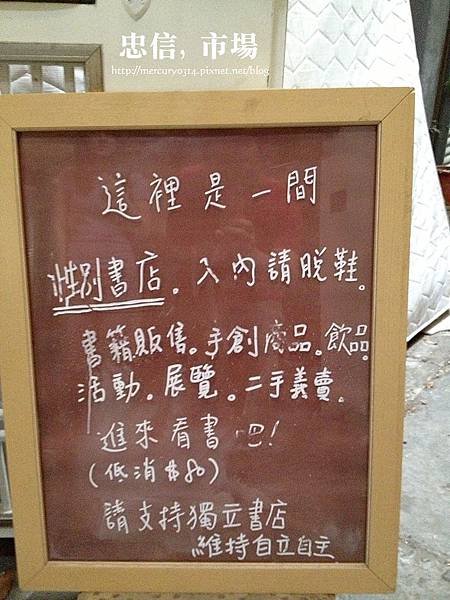 忠信, 市場
http://mercury0314.pixnet.net/blog
這裡是一間
性別書店。入內請脱鞋。
書籍販售。手創商品。飲品。
活動。展覽。二手義賣。
進來看書吧!
(低消$80)
請支持獨立書店
維持自立自主